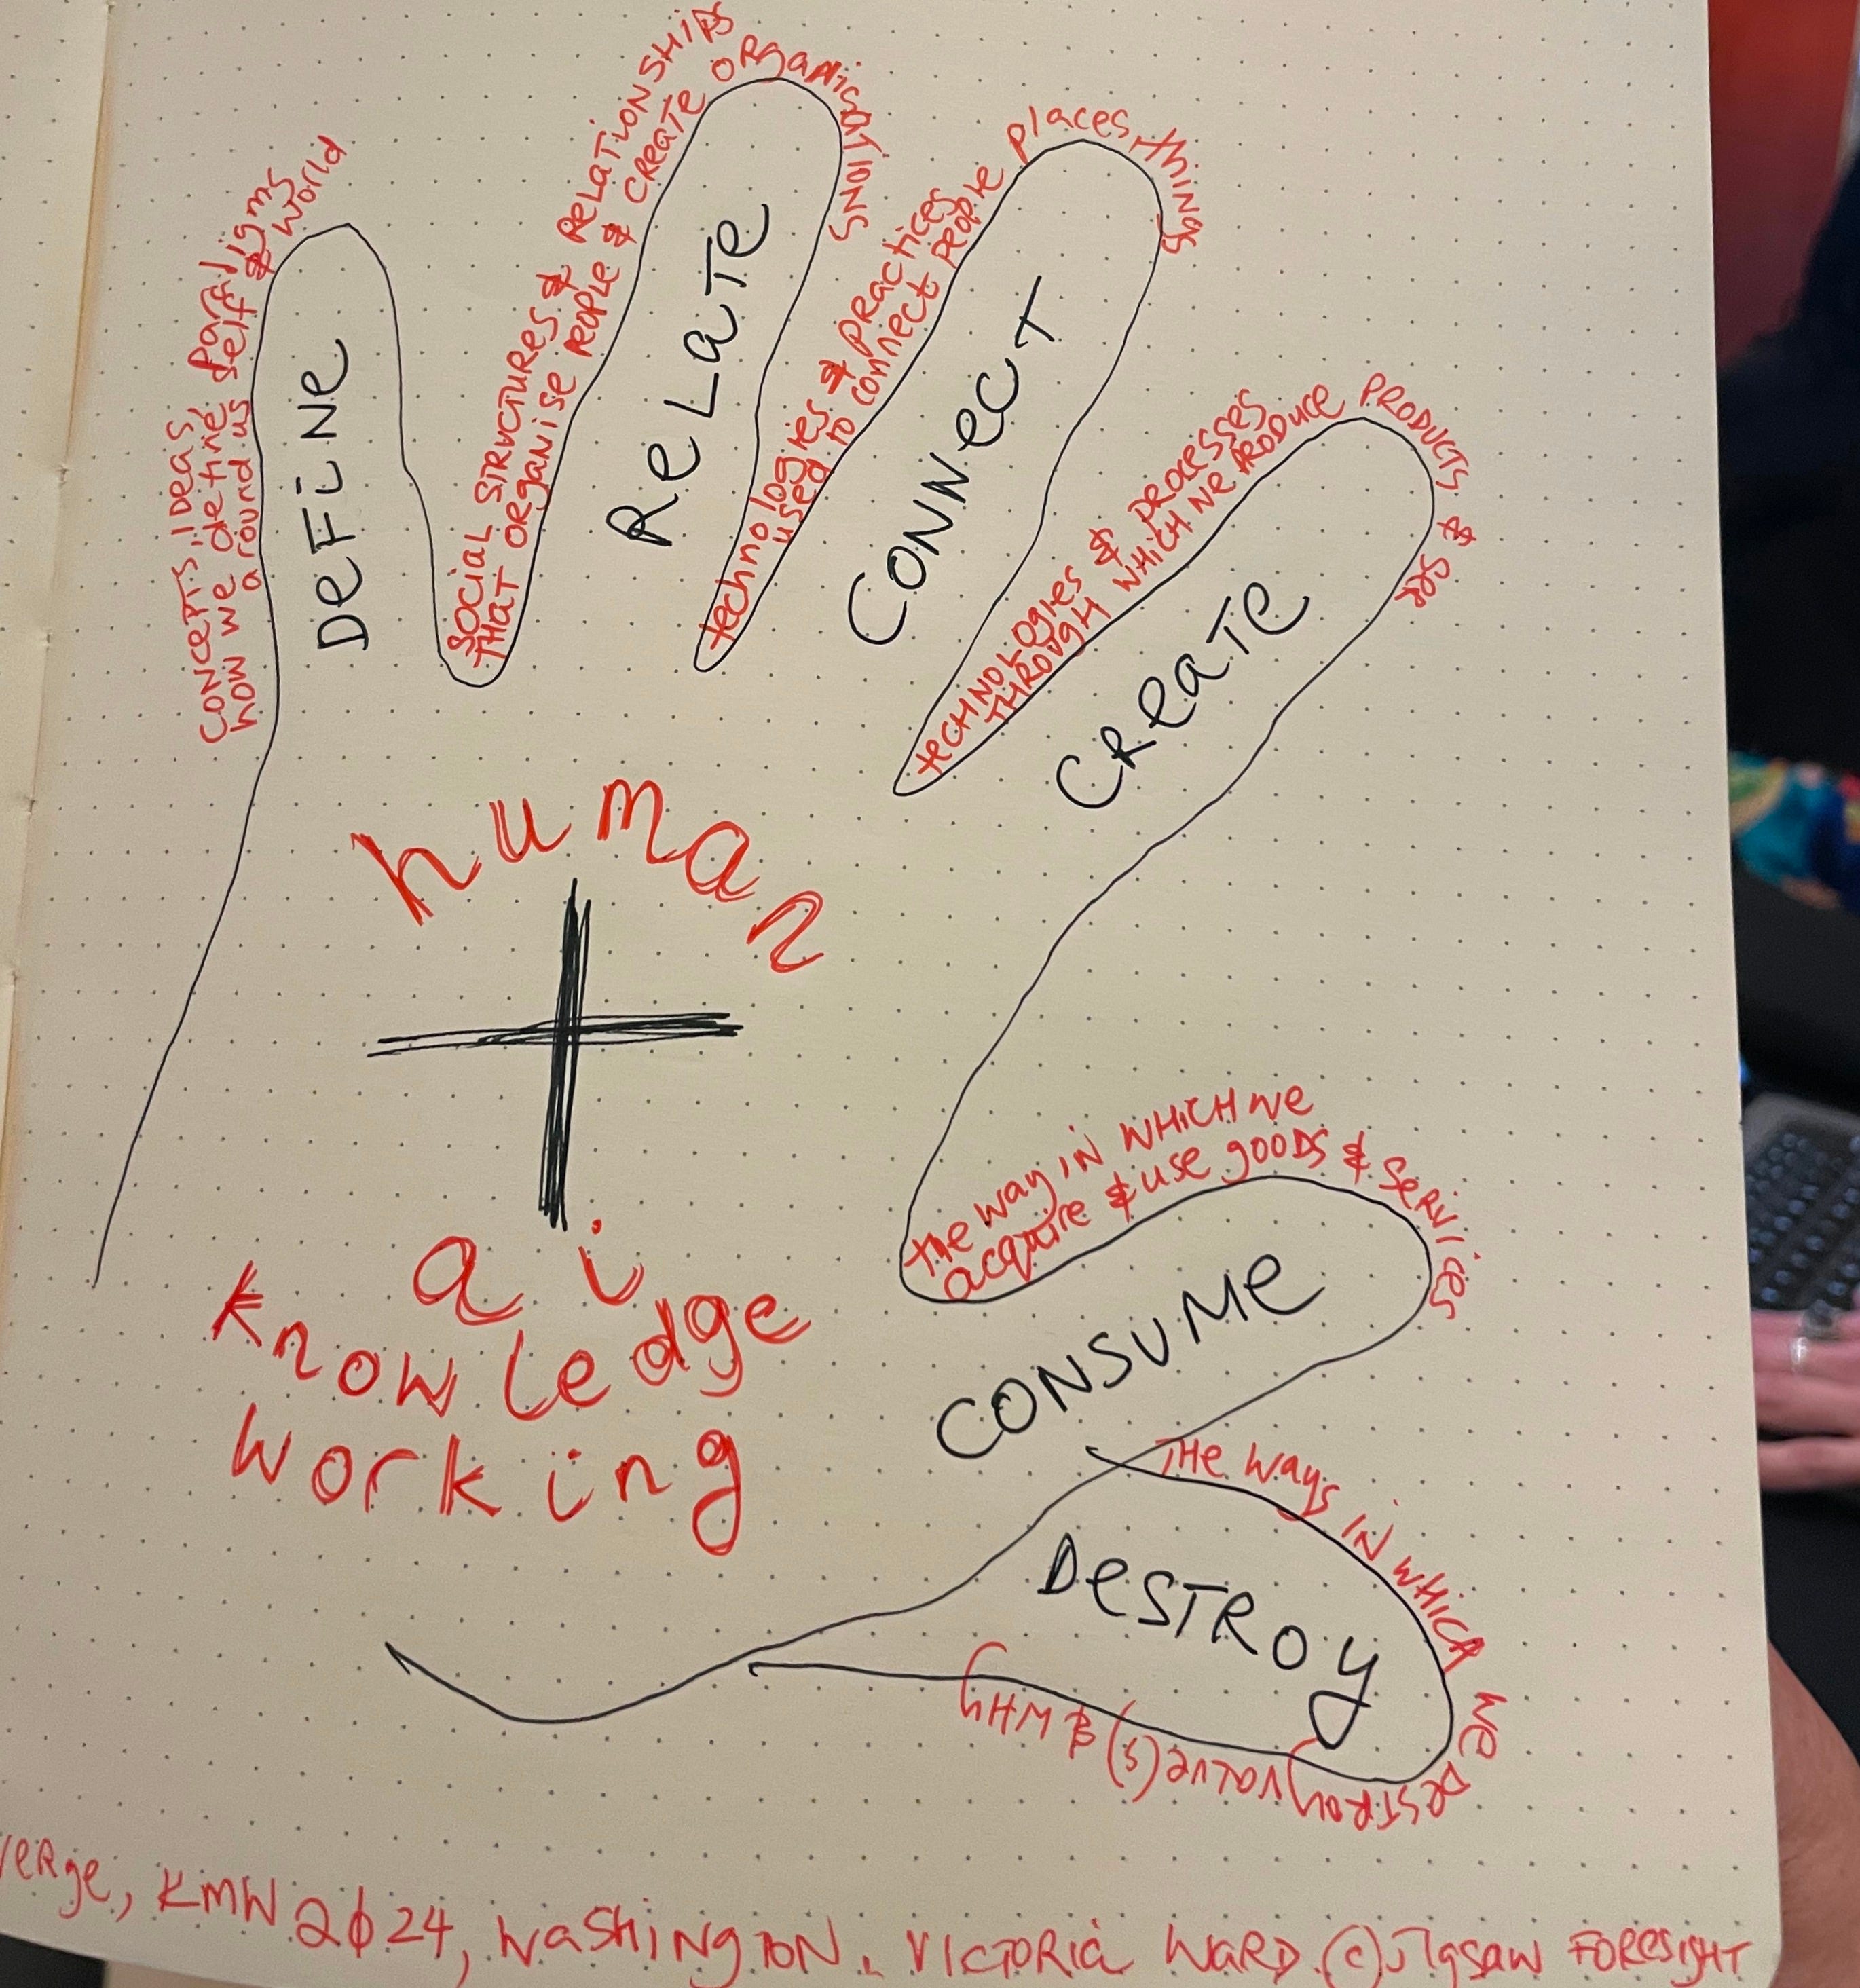 CONCEPTS, IDEAS, paradigms
how we define self & world
around us
DEFINE
SOCIAL STRUCTURES & RELATIONSHIPS
THAT ORGANISE PEOPLE & CREATE organisations
RELATE
technologies & practices
used to connect people places, things
CONNECT
TECHNOLOGIES & PROCESSES
THROUGH WHICH WE PRODUCE PRODUCTS & SER
CREATE
human
ai
knowledge
working
the way IN WHICH WE
acquire & use goods & SERVICES
CONSUME
THE ways IN WHICH WE DESTROY value(s) & WHy
DESTROY
verge, KMW 2024, WASHINGTON. VICTORIA WARD (c) JIGSAW FORESIGHT